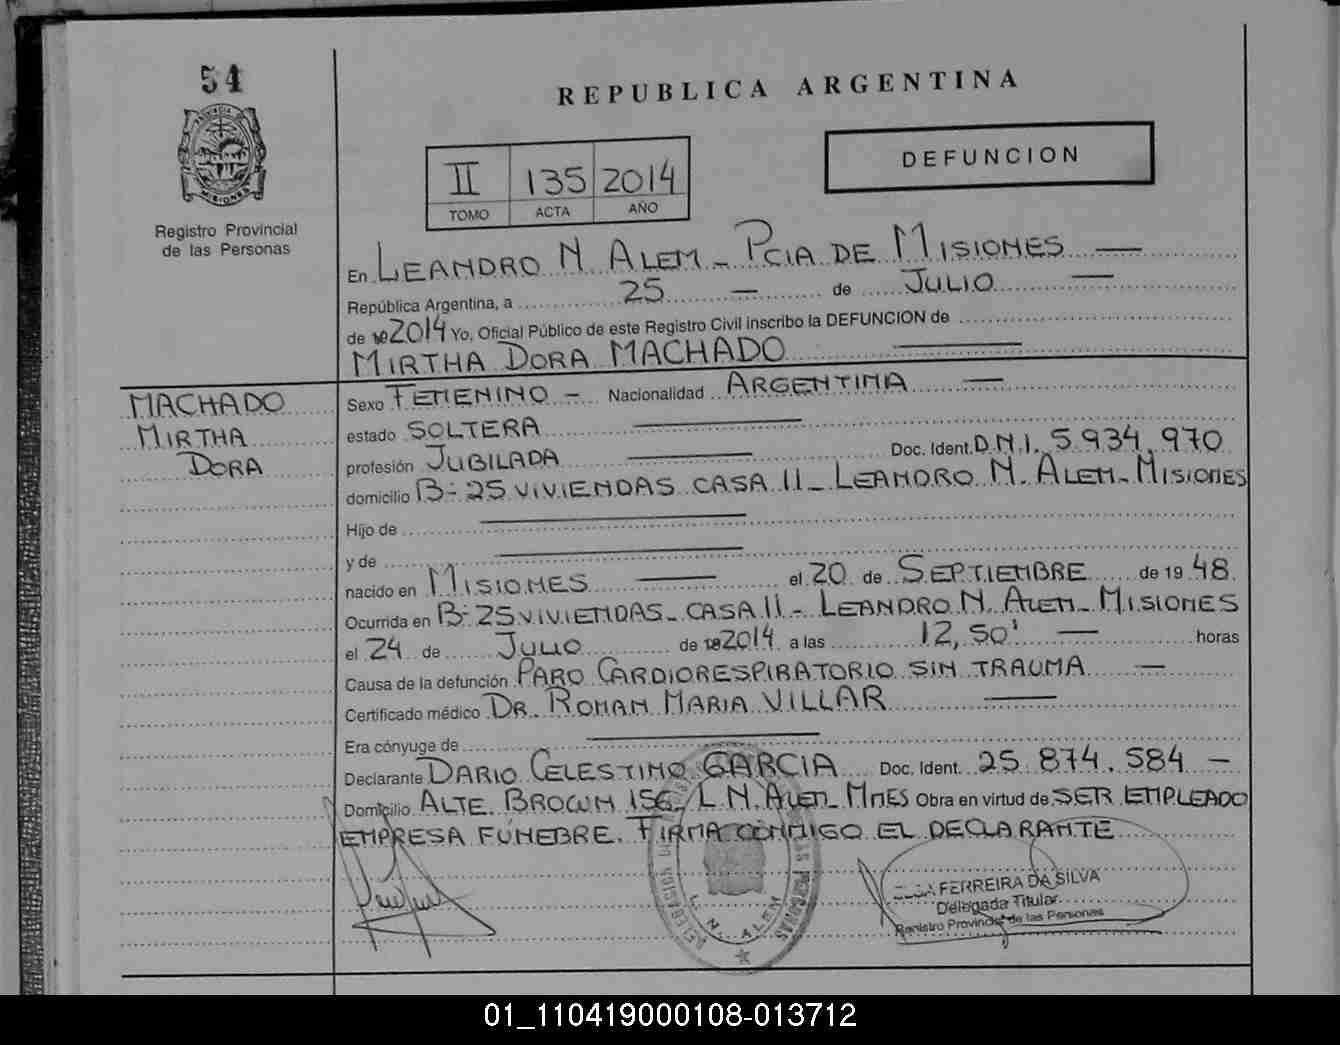 54
REPUBLICA ARGENTINA
PROVINCIA DE
MISIONES
Registro Provincial
de las Personas
II 135 2014
TOMO ACTA AÑO
DEFUNCION
En LEANDRO N. ALEM - PCIA DE MISIONES —
República Argentina, a 25 — de JULIO —
de 2014 Yo, Oficial Público de este Registro Civil inscribo la DEFUNCION de
MIRTHA DORA MACHADO —
MACHADO
MIRTHA
DORA
Sexo FEMENINO - Nacionalidad ARGENTINA —
estado SOLTERA —
profesión JUBILADA — Doc. Ident. D.N.I. 5.934.970
domicilio B: 25 VIVIENDAS CASA 11 - LEANDRO N. ALEM - MISIONES
Hijo de —
y de —
nacido en MISIONES — el 20 de SEPTIEMBRE de 19 48
Ocurrida en B: 25 VIVIENDAS - CASA 11 - LEANDRO N. ALEM - MISIONES
el 24 de JULIO de 2014 a las 12,50' — horas
Causa de la defunción PARO CARDIORESPIRATORIO SIN TRAUMA —
Certificado médico DR. ROMAN MARIA VILLAR —
Era cónyuge de —
Declarante DARIO CELESTINO GARCIA Doc. Ident. 25.874.584 -
Domicilio ALTE. BROWN 156 - L.N. ALEM - MNES Obra en virtud de SER EMPLEADO
EMPRESA FÚNEBRE. FIRMA CONMIGO EL DECLARANTE
L. N. ALEM
FERREIRA DA SILVA
Delegada Titular
Registro Provincial de las Personas
01_110419000108-013712